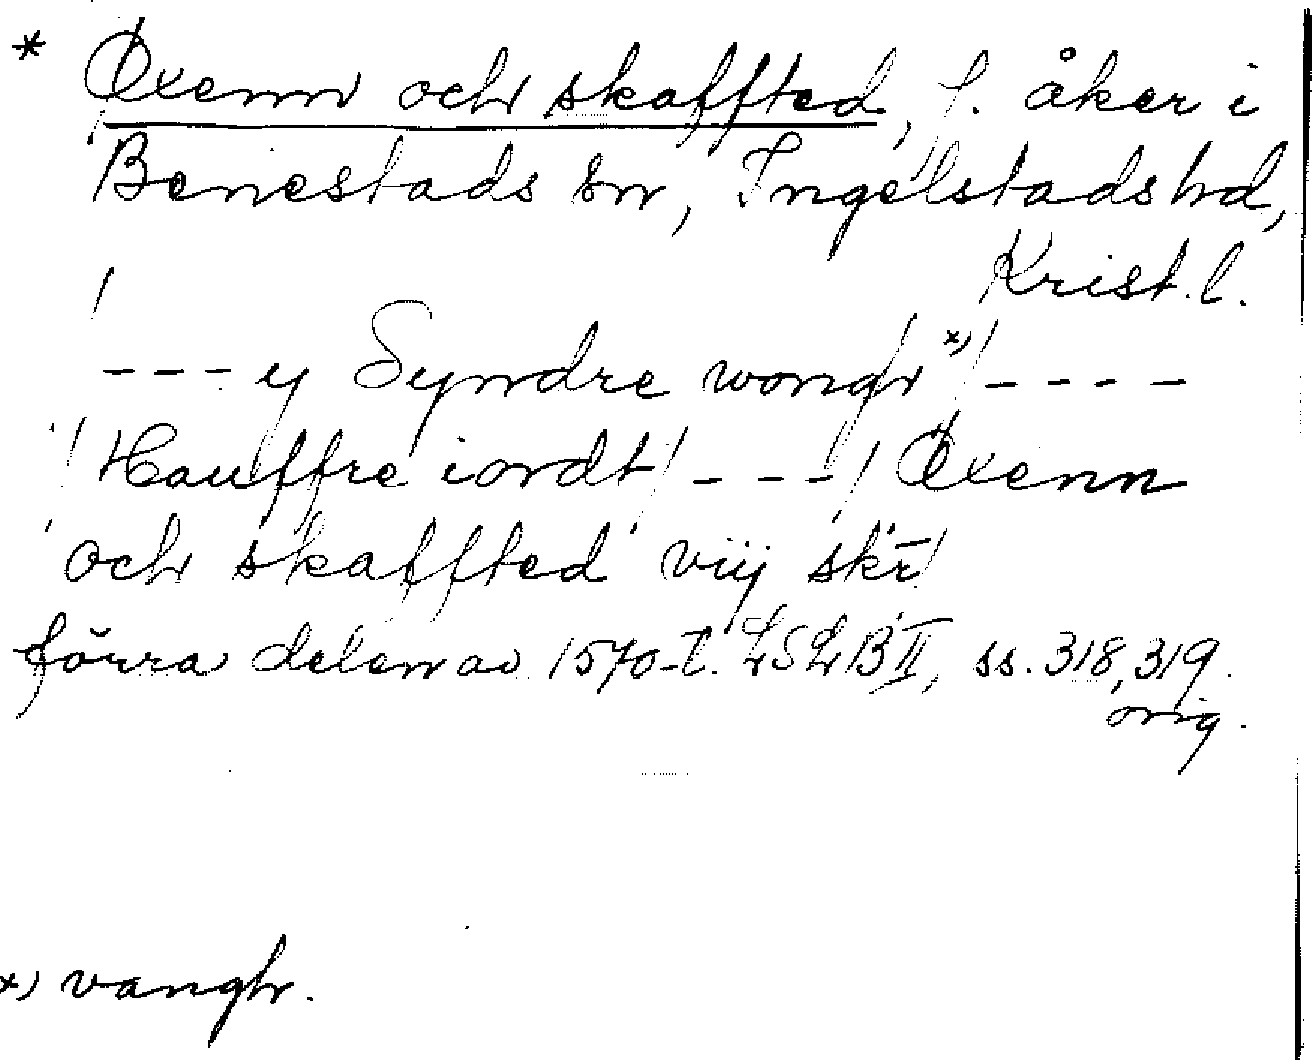 * Øxenn och skaffted, f. åker i
Benestads sn, Ingelstads hd,
Krist. l.
--- y Syndre wongr x) / ----
/ Hauffre iordt / --- / Øxenn
och skaffted viij skr̄ /
förra delen av 1570-t. LSLB II, ss. 318, 319.
orig.
x) vangh.